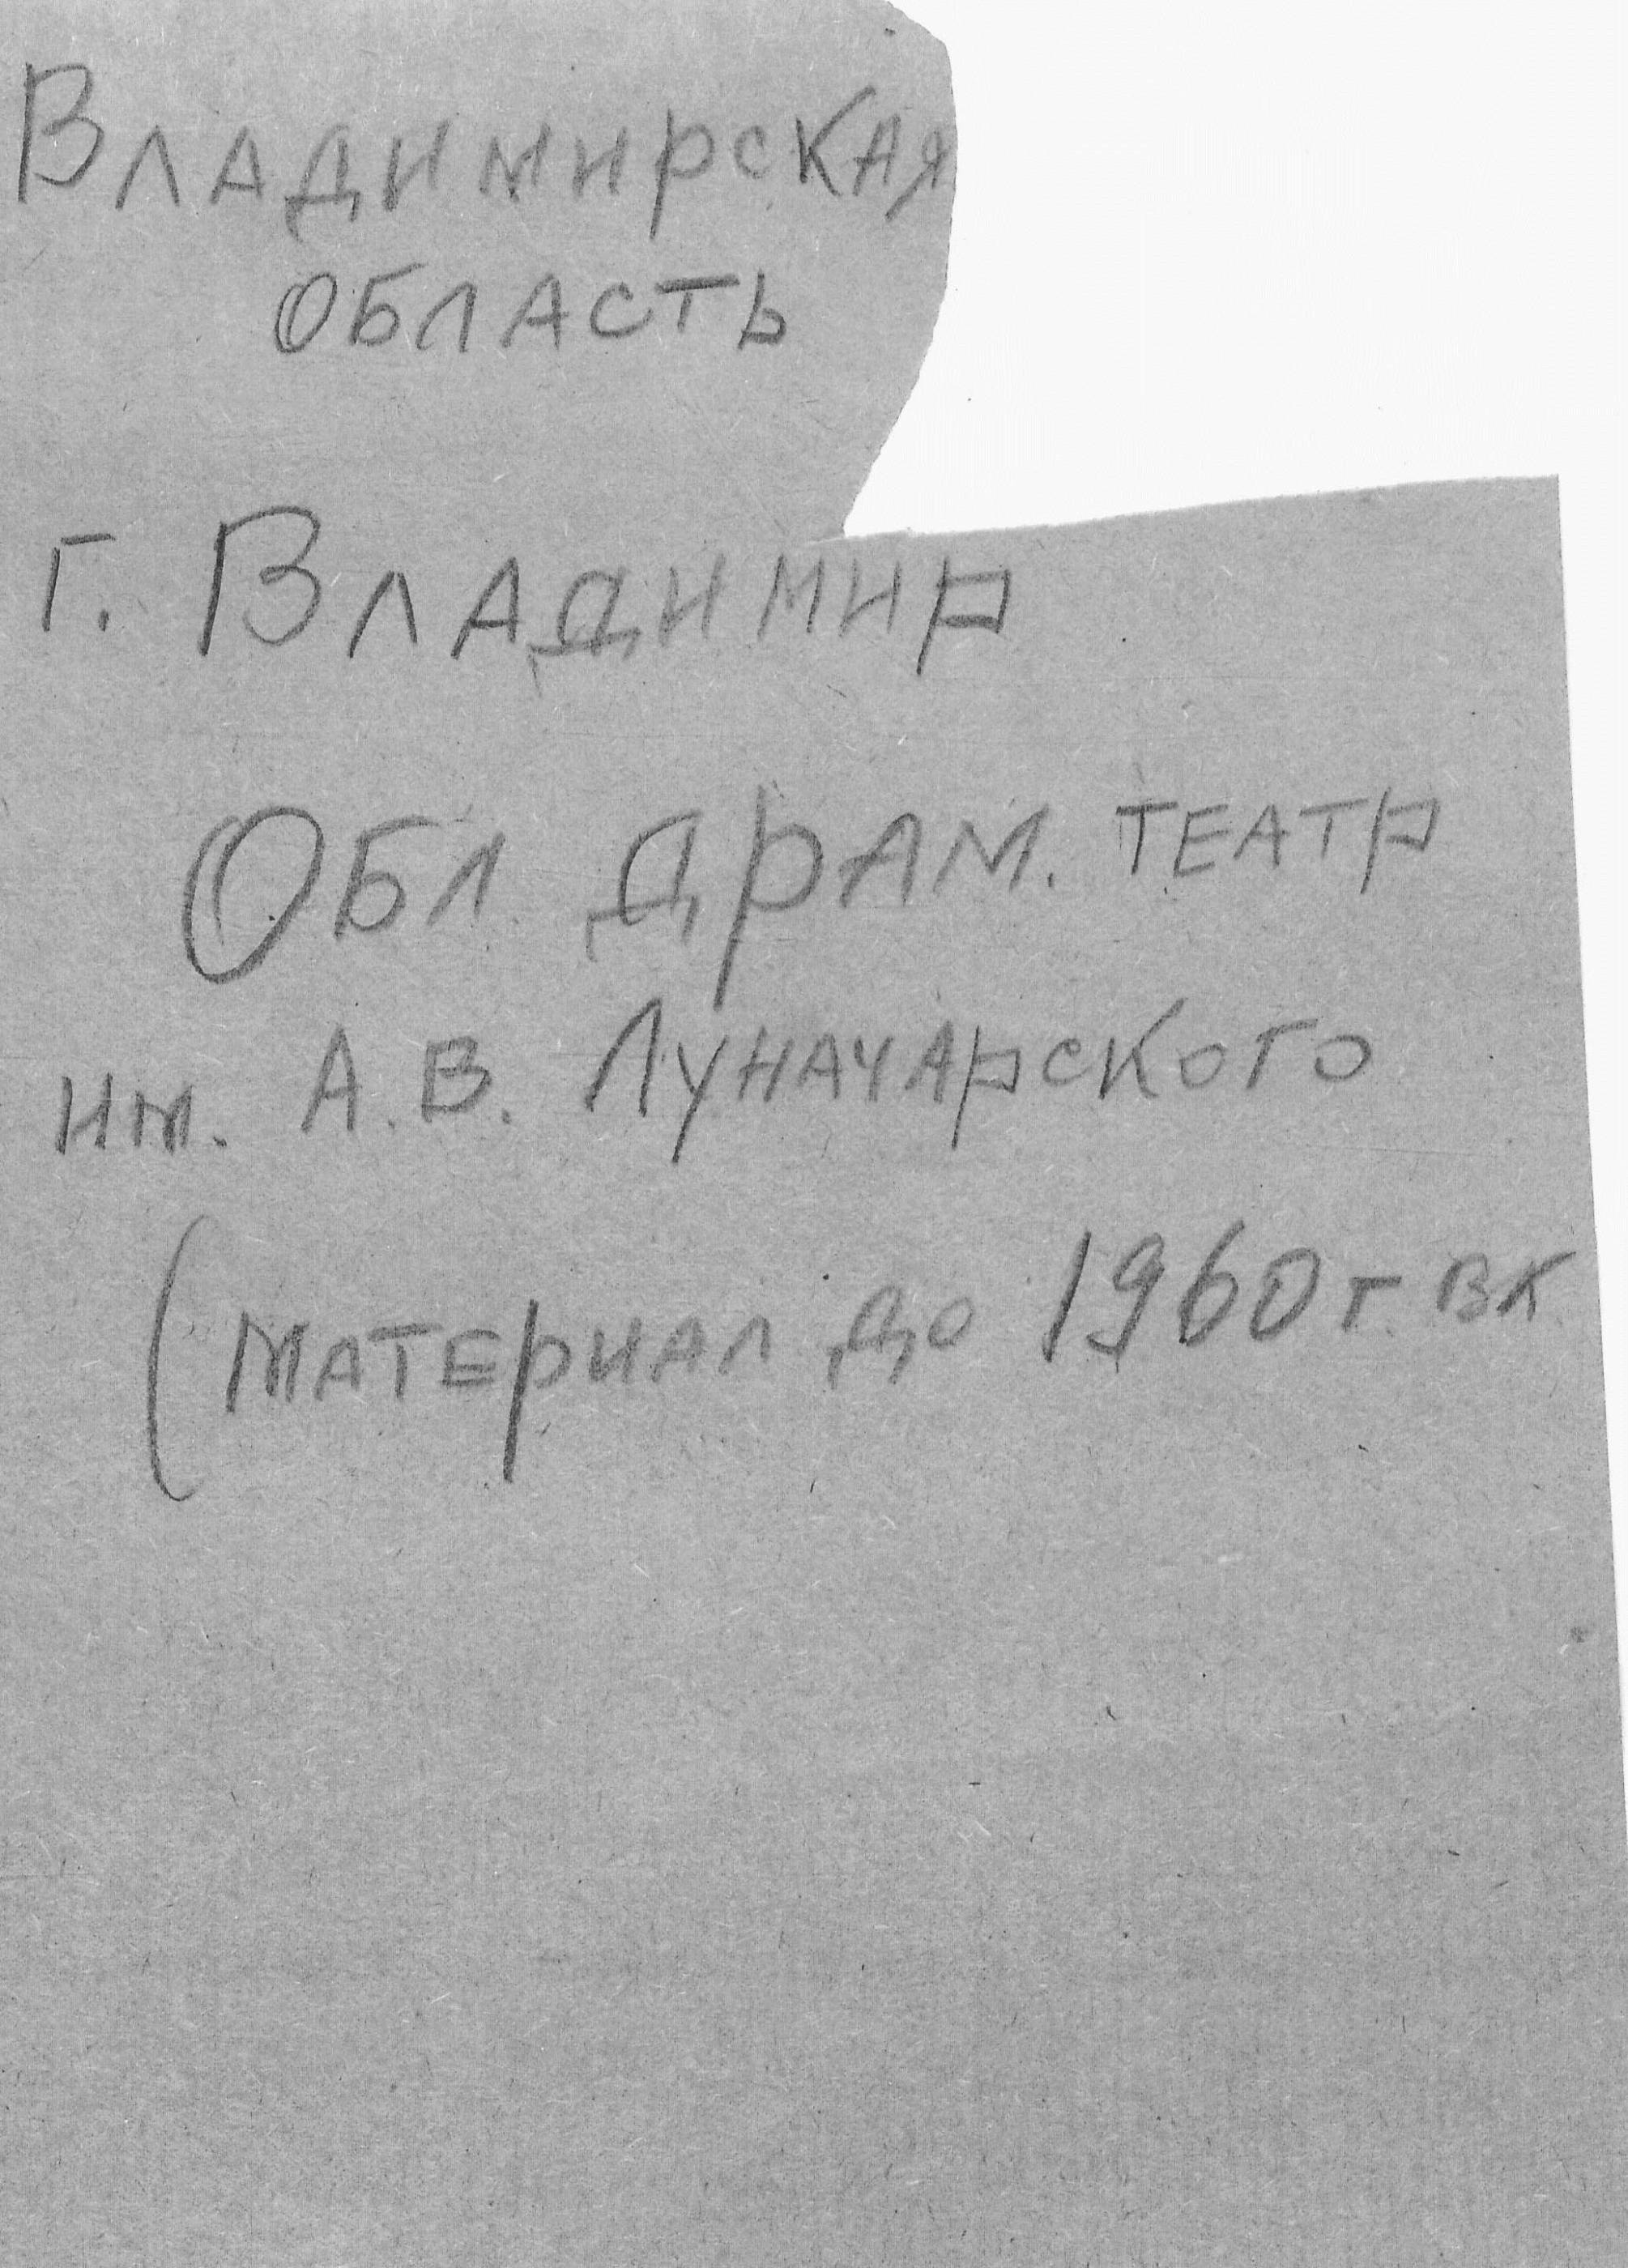 Владимирская
область
г. Владимир
Обл. драм. театр
им. А.В. Луначарского
(материал до 1960 г. вк